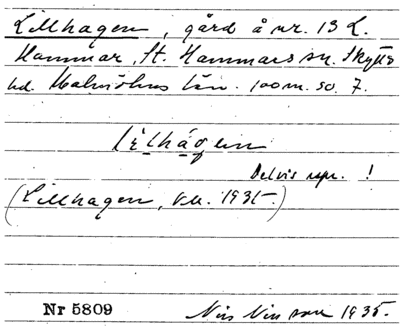 Lillhagen, gård å nr. 13 L.
Hammar, St. Hammars sn. Skytts
hd. Malmöhus län. 100 m. so. 7.
lilhágen
Delvis repr. !
(Lillhagen, V.U. 1935.)
Nr 5809 Nils Nilsson 1935.